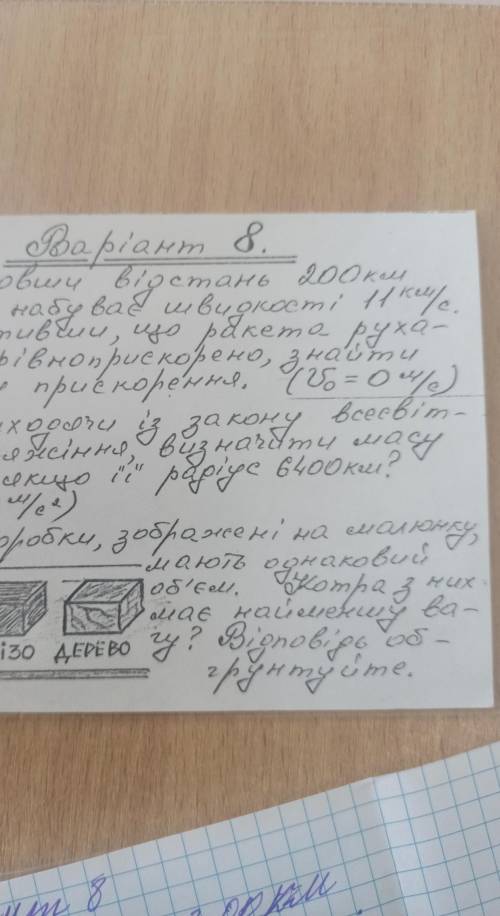 Варіант 8.
овши відстань 200 км
набуває швидкості 11 км/с.
тивши, що ракета руха-
рівноприскорено, знайти
прискорення. (V₀ = 0 м/с)
ходячи із закону всесвіт-
яжіння, визначити масу
якщо її радіус 6400 км?
м/с²)
оробки, зображені на малюнку,
мають однаковий
об'єм. Котра з них
має найменшу ва-
гу? Відповідь об-
ґрунтуйте.
ІЗО ДЕРЕВО
нт 8
00 км